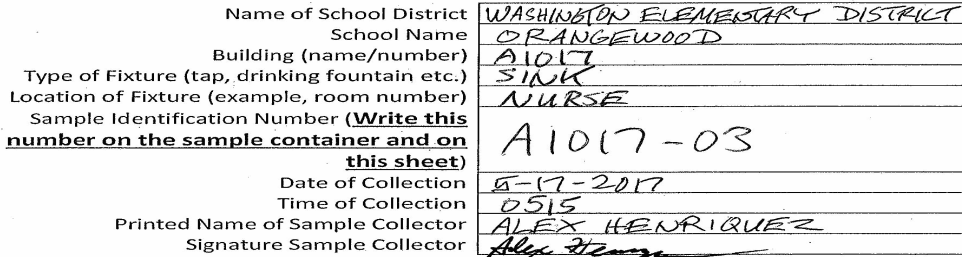 Name of School District WASHINGTON ELEMENTARY DISTRICT
School Name ORANGEWOOD
Building (name/number) A1017
Type of Fixture (tap, drinking fountain etc.) SINK
Location of Fixture (example, room number) NURSE
Sample Identification Number (Write this
number on the sample container and on A1017-03
this sheet)
Date of Collection 5-17-2017
Time of Collection 0515
Printed Name of Sample Collector ALEX HENRIQUEZ
Signature Sample Collector Alex